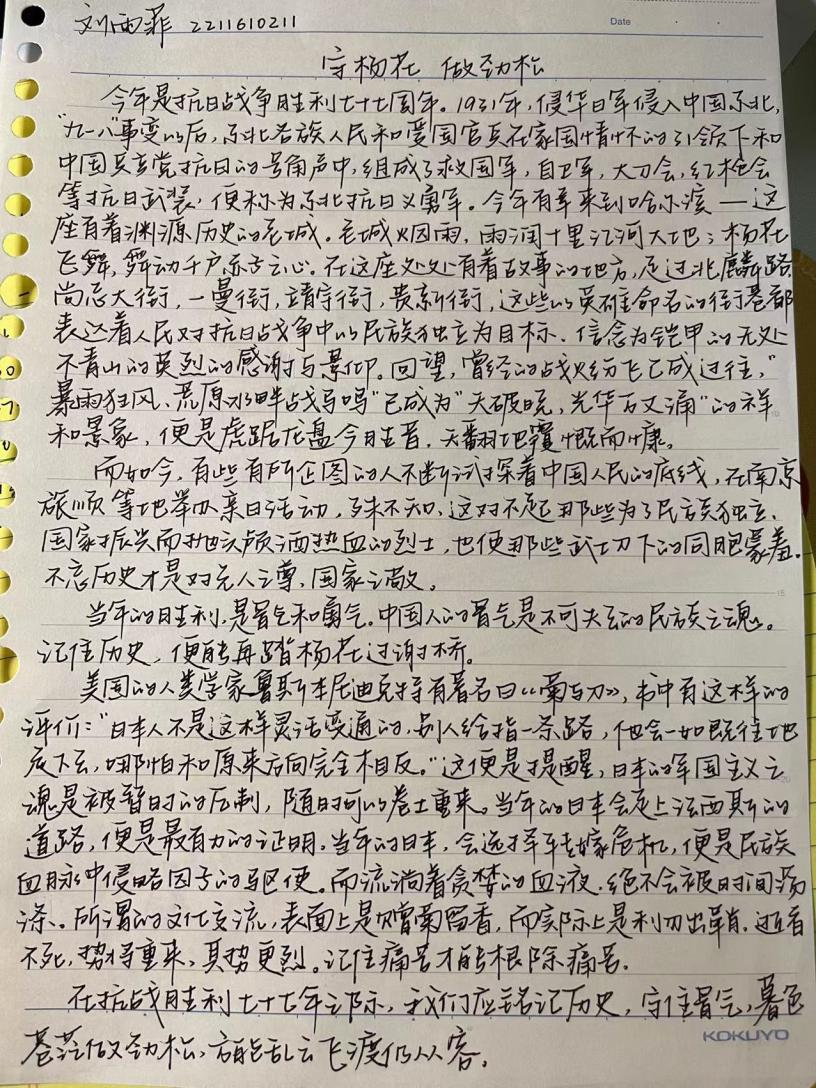 刘雨菲 2211610211
Date
守杨花 做劲松
今年是抗日战争胜利七十七周年。1931年，侵华日军侵入中国东北，
"九一八"事变以后，东北各族人民和爱国官兵在家国情怀的引领下和
中国共产党抗日的号角声中，组成了救国军，自卫军，大刀会，红枪会
等抗日武装，便称为东北抗日义勇军。今年有幸来到哈尔滨——这
座有着渊源历史的老城。老城烟雨，雨润十里江河大地；杨花
飞舞，舞动千户赤子之心。在这座处处有着故事的地方，走过兆麟路，
尚志大街，一曼街，靖宇街，贵新街，这些以英雄命名的街巷都
表达着人民对抗日战争中以民族独立为目标、信念为铠甲的无处
不青山的英烈的感谢与景仰。回望，曾经的战火纷飞已成过往，"
暴雨狂风，荒原水畔战马鸣"已成为"天破晓，光华万丈涌"的祥
和景象，便是虎踞龙盘今胜昔，天翻地覆慨而慷。
而如今，有些有所企图的人不断试探着中国人民的底线，在南京
旅顺等地举办亲日活动，殊不知，这对不起那些为了民族独立、
国家振兴而抛头颅洒热血的烈士，也使那些武士刀下的同胞蒙羞。
不忘历史才是对先人之尊，国家之敬。
当年的胜利，是骨气和勇气。中国人的骨气是不可失去的民族之魂。
记住历史，便能再踏杨花过谢桥。
美国的人类学家鲁斯本尼迪克特有著名曰《菊与刀》，书中有这样的
评价："日本人不是这样灵活变通的，别人给指一条路，他会一如既往地
走下去，哪怕和原来方向完全相反。"这便是提醒，日本的军国主义之
魂是被暂时的压制，随时可以卷土重来。当年的日本会走上法西斯的
道路，便是最有力的证明。当年的日本，会选择转嫁危机，便是民族
血脉中侵略因子的驱使。而流淌着贪婪的血液，绝不会被时间荡
涤。所谓的文化交流，表面上是赠菊留香，而实际上是利刃出鞘。
不死，势将重来，其势更烈。记住痛苦才能根除痛苦。
在抗战胜利七十七年之际，我们应铭记历史，守住骨气，暮色
苍茫做劲松，方能乱云飞渡仍从容。
KOKUYO